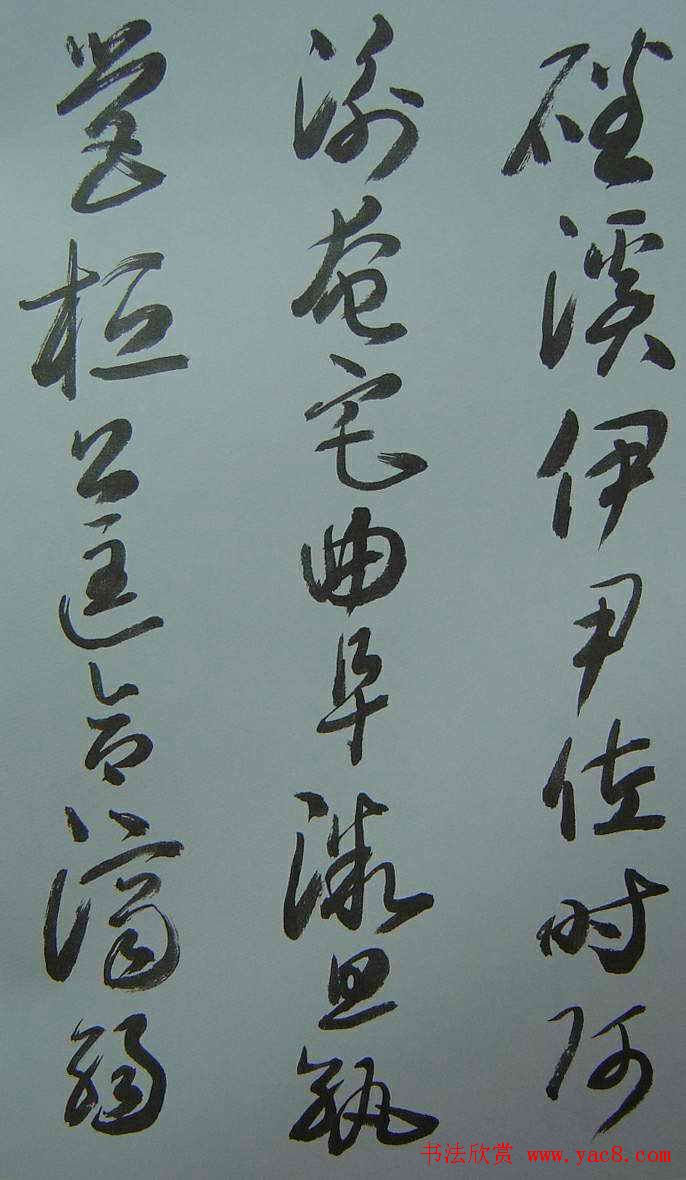 磻溪伊尹佐时阿
衡奄宅曲阜微旦孰
營桓公匡合濟弱
书法欣赏 www.yac8.com